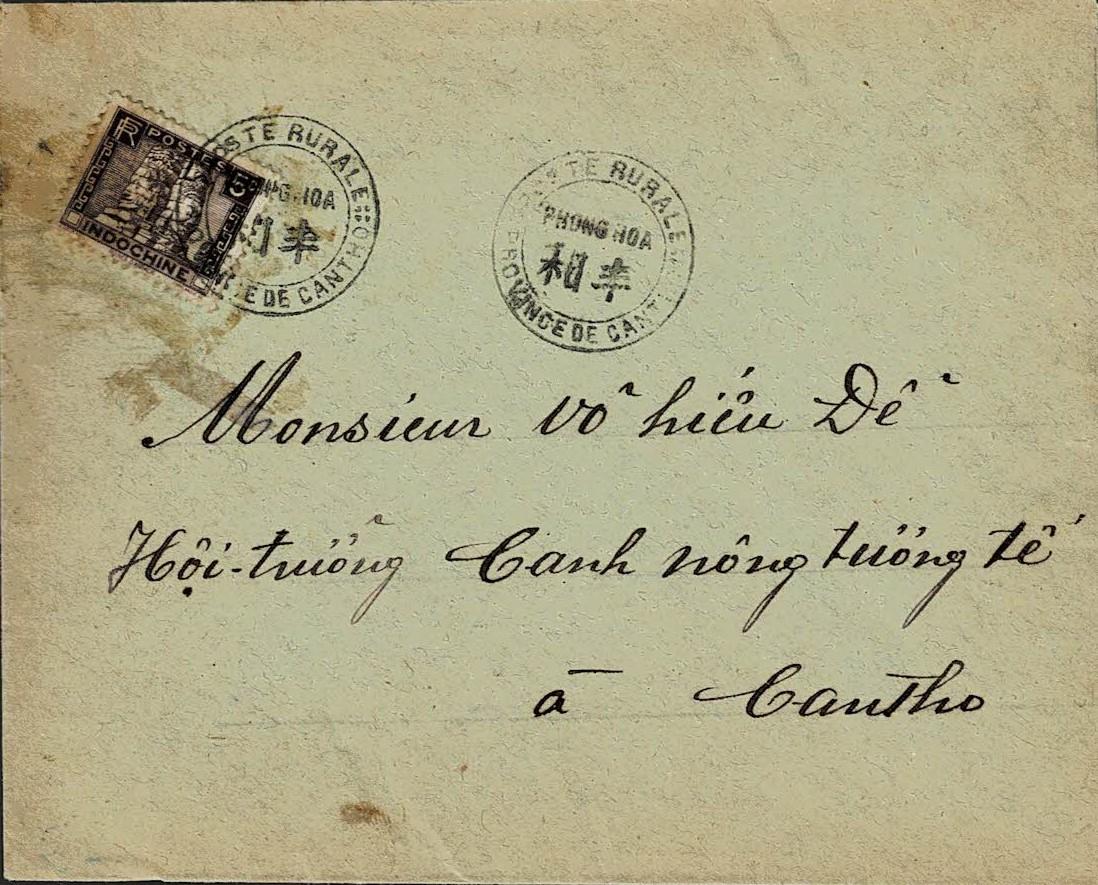 RF POSTES 5
INDOCHINE
POSTE RURALE
PHONG HOA
和丰
PROVINCE DE CANTHO
POSTE RURALE
PHONG HOA
和丰
PROVINCE DE CANTHO
Monsieur Võ hiếu Dễ
Hội-trưởng Canh nông tương tế
à Cantho